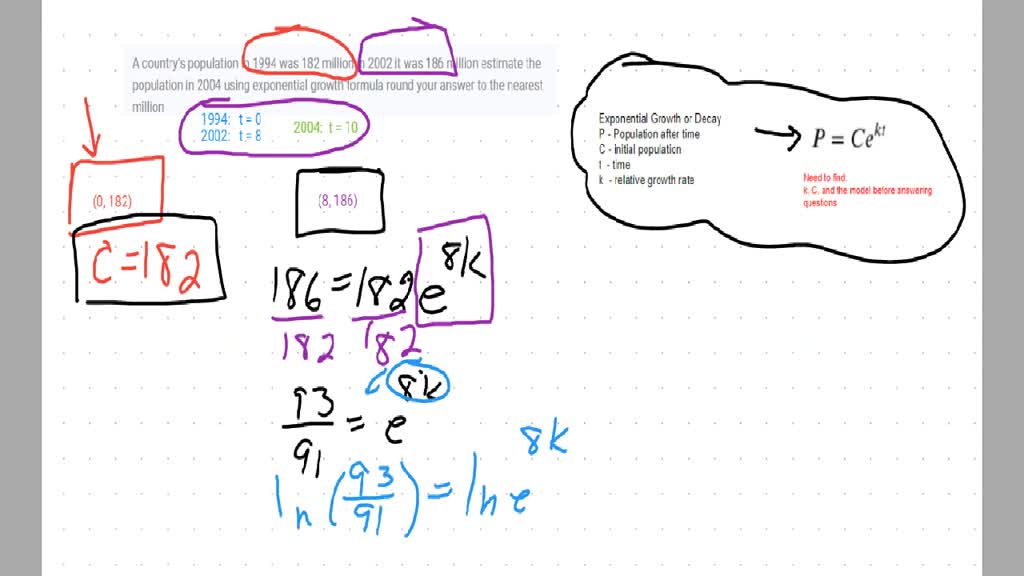 A country's population in 1994 was 182 million in 2002 it was 186 million estimate the
population in 2004 using exponential growth formula round your answer to the nearest
million
1994: t = 0
2002: t = 8
2004: t = 10
(0, 182)
C = 182
(8, 186)
186 = 182 e^8k
182 182
93/91 = e^8k
ln (93/91) = ln e^8k
Exponential Growth or Decay
P - Population after time
C - Initial population
t - time
k - relative growth rate
P = Ce^kt
Need to find:
k, C, and the model before answering
questons